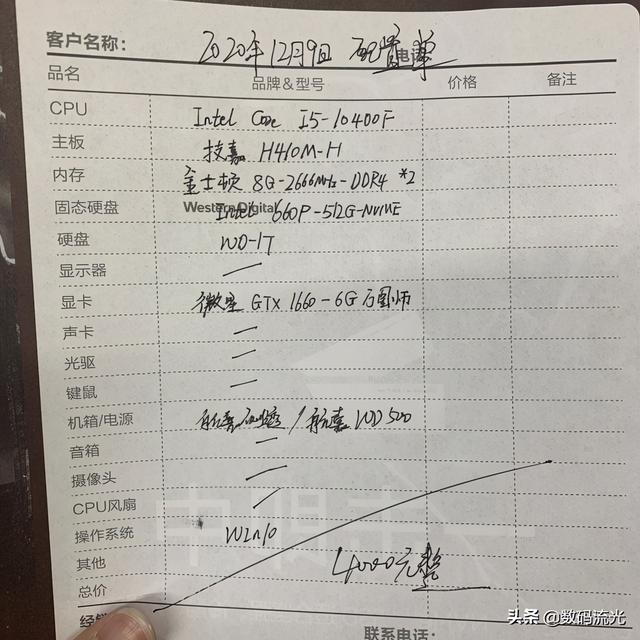 客户名称: 2020年12月9日 配置单
品名 品牌&型号 价格 备注
CPU Intel Core I5-10400F
主板 技嘉 H410M-H
内存 金士顿 8G-2666MHz-DDR4 *2
固态硬盘 Western Digital Intel 660P-512G-NVME
硬盘 WD-1T
显示器
显卡 微星 GTX 1660-6G 万图师
声卡
光驱
键鼠
机箱/电源 航嘉 / 航嘉 WD500
音箱
摄像头
CPU风扇
操作系统 Win10
其他 4000元整
总价
联系电话:
头条 @数码流光